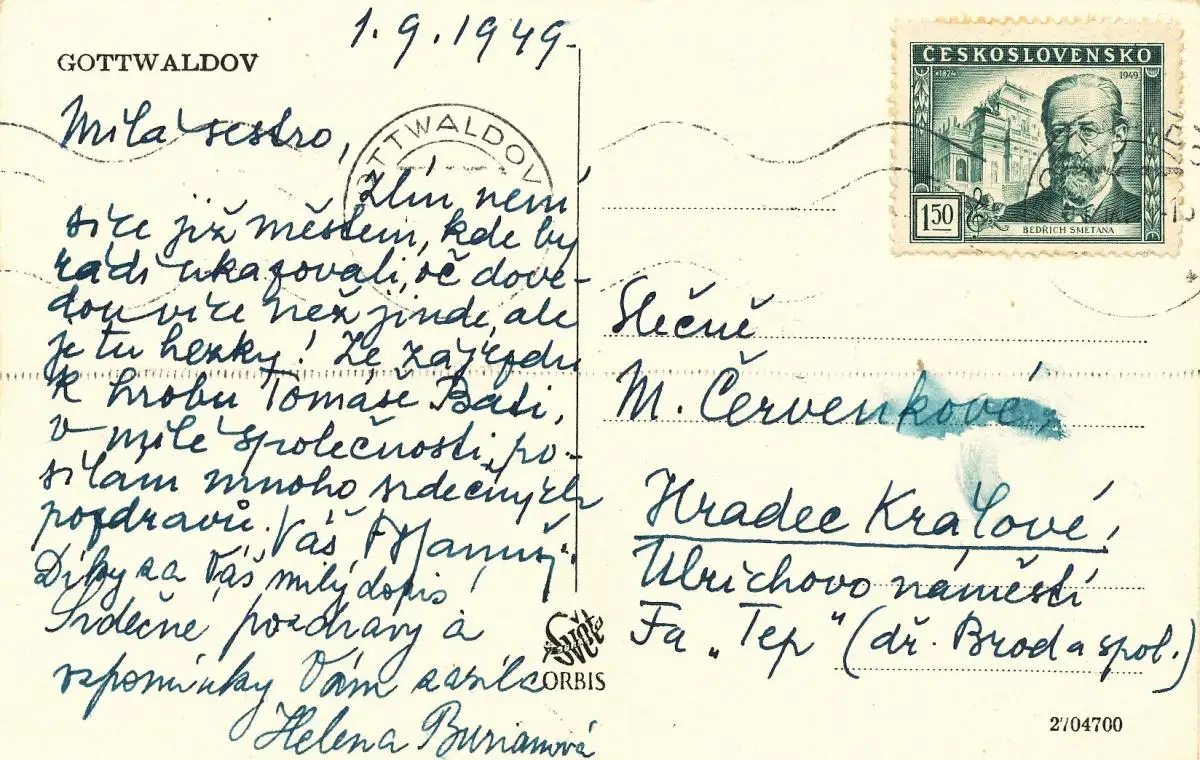 1.9.1949.
GOTTWALDOV
Milá sestro,
Zlín není
sice již městem, kde by
rádi ukazovali, oč dove-
dou více než jinde, ale
je tu hezky! Ze zájezdu
k hrobu Tomáše Bati,
v milé společnosti, po-
sílám mnoho srdečných
pozdravů. Váš
Díky za Váš milý dopis!
Srdečné pozdravy a
vzpomínky Vám zasílá
Helena Burianová
GOTTWALDOV
ČESKOSLOVENSKO
1874 1949
1 50
BEDŘICH SMETANA
Slečně
M. Červenkové,
Hradec Králové,
Ulrichovo náměstí
Fa „Tep" (dř. Brod a spol.)
Svět
ORBIS
2704700